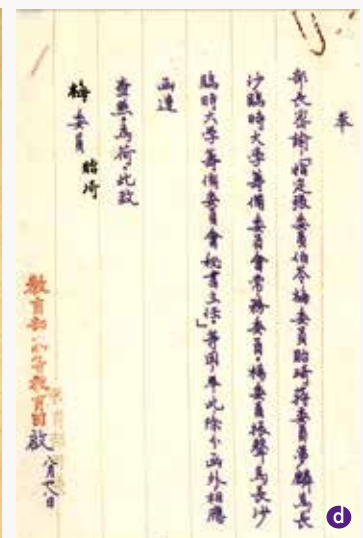 奉
部長密諭「指定張委員伯苓梅委員貽琦蔣委員夢麟為長
沙臨時大學籌備委員會常務委員。楊委員振聲為長沙
臨時大學籌備委員會秘書主任。」等因。奉此除分函外相應
函達
查照為荷。此致
梅委員 貽琦
教育部高等教育司 啟 八月廿八日
d